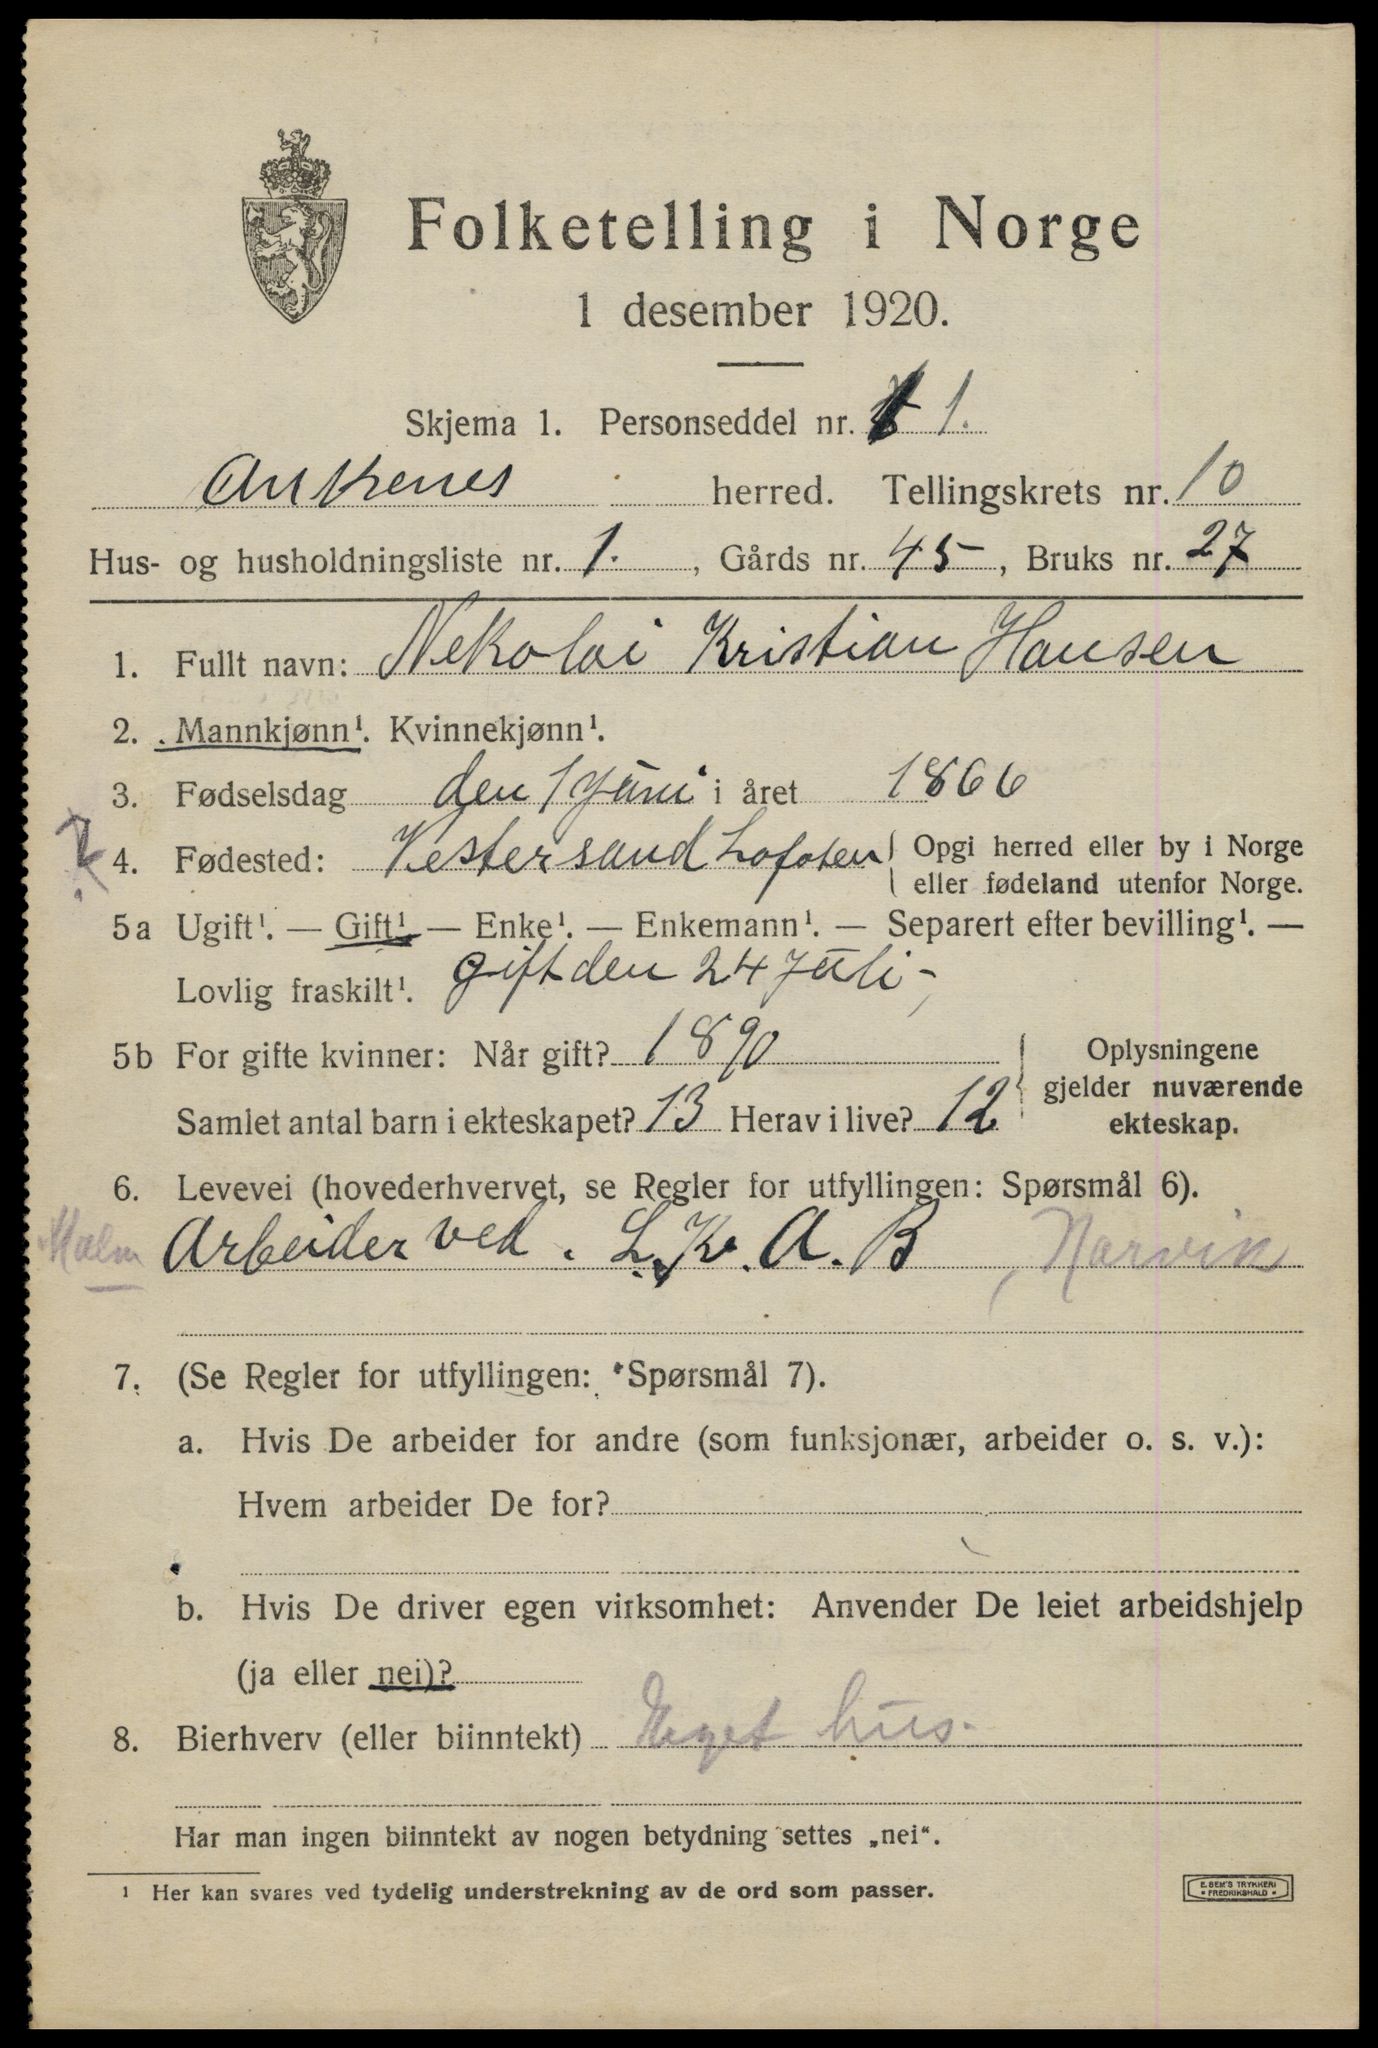 Folketelling i Norge
1 desember 1920.
Skjema 1. Personseddel nr. 1.
Ankenes herred. Tellingskrets nr. 10
Hus- og husholdningsliste nr. 1. , Gårds nr. 45 , Bruks nr. 27
1. Fullt navn: Nekolai Kristian Hansen
2. Mannkjønn¹. Kvinnekjønn¹.
3. Fødselsdag den 1 Juni i året 1866
4. Fødested: Vestersand Lofoten { Opgi herred eller by i Norge
eller fødeland utenfor Norge.
5a Ugift¹. — Gift¹ — Enke¹. — Enkemann¹. — Separert efter bevilling¹. —
Lovlig fraskilt¹. Gift den 24 Juli -
5b For gifte kvinner: Når gift? 1890
Samlet antal barn i ekteskapet? 13 Herav i live? 12
} Oplysningene
gjelder nuværende
ekteskap.
6. Levevei (hovederhvervet, se Regler for utfyllingen: Spørsmål 6).
Malm Arbeider ved. L. K. A. B , Narvik
7. (Se Regler for utfyllingen: Spørsmål 7).
a. Hvis De arbeider for andre (som funksjonær, arbeider o. s. v.):
Hvem arbeider De for?
b. Hvis De driver egen virksomhet: Anvender De leiet arbeidshjelp
(ja eller nei)?
8. Bierhverv (eller biinntekt) Eget hus.
Har man ingen biinntekt av nogen betydning settes „nei“.
¹ Her kan svares ved tydelig understrekning av de ord som passer.
E. SEM'S TRYKKERI
• FREDRIKSHALD •